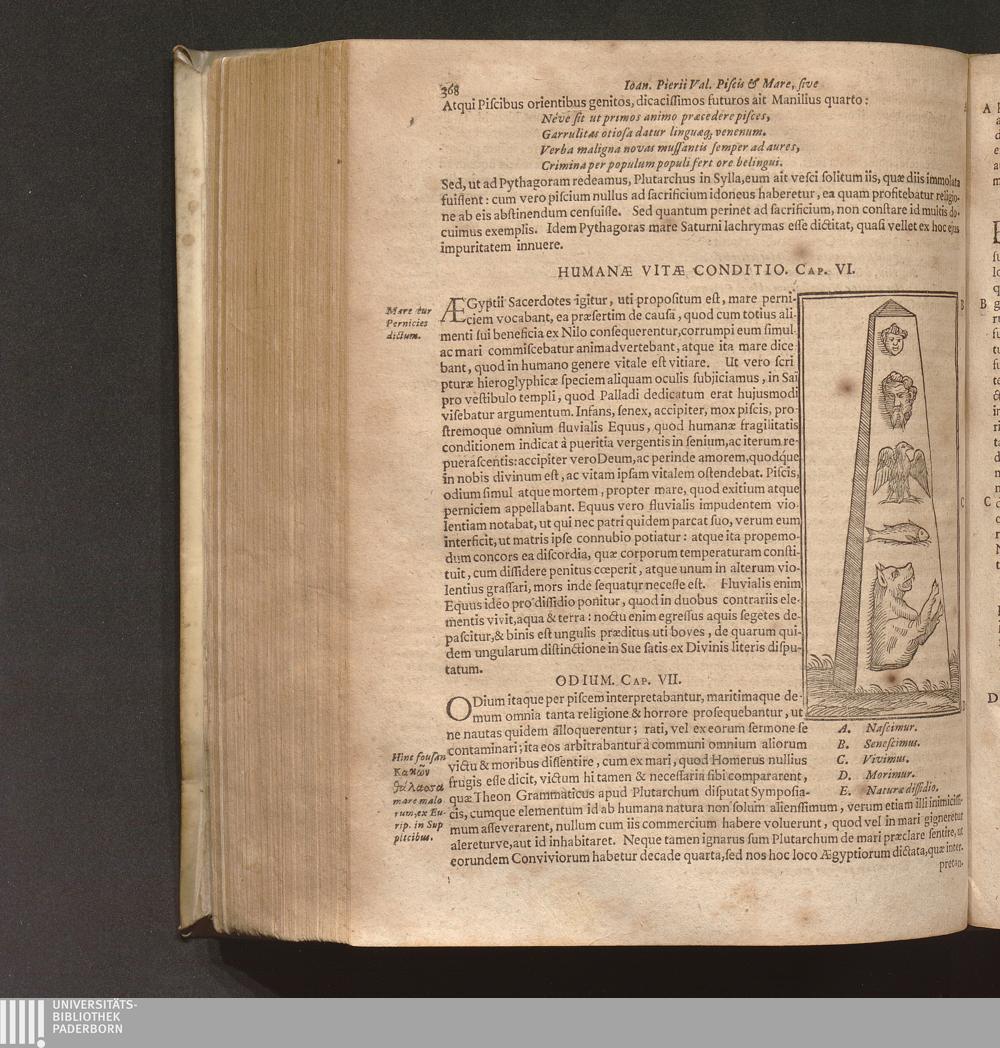 368
Ioan. Pierii Val. Piſcis & Mare, ſive
Atqui Piſcibus orientibus genitos, dicaciſſimos futuros ait Manilius quarto:
Néve ſit ut primos animo præcedere piſces,
Garrulitas otioſa datur linguæq; venenum.
Verba maligna novas muſſantis ſemper ad aures,
Crimina per populum populi fert ore belingui.
Sed, ut ad Pythagoram redeamus, Plutarchus in Sylla, eum ait veſci ſolitum iis, quæ diis immolata
fuiſſent: cum vero piſcium nullus ad ſacrificium idoneus haberetur, ea quam profitebatur religio-
ne ab eis abſtinendum cenſuiſſe. Sed quantum perinet ad ſacrificium, non conſtare id multis do-
cuimus exemplis. Idem Pythagoras mare Saturni lachrymas eſſe dictitat, quaſi vellet ex hoc ejus
impuritatem innuere.
HUMANÆ VITÆ CONDITIO. CAP. VI.
Mare cur
Pernicies
dictum.
ÆGyptii Sacerdotes igitur, uti propoſitum eſt, mare perni-
ciem vocabant, ea præſertim de cauſa, quod cum totius ali-
menti ſui beneficia ex Nilo conſequerentur, corrumpi eum ſimul-
ac mari commiſcebatur animadvertebant, atque ita mare dice
bant, quod in humano genere vitale eſt vitiare. Ut vero ſcri
pturæ hieroglyphicæ ſpeciem aliquam oculis ſubjiciamus, in Sai
pro veſtibulo templi, quod Palladi dedicatum erat hujusmodi
viſebatur argumentum. Infans, ſenex, accipiter, mox piſcis, pro-
ſtremoque omnium fluvialis Equus, quod humanæ fragilitatis
conditionem indicat à pueritia vergentis in ſenium, ac iterum re-
pueraſcentis: accipiter vero Deum, ac perinde amorem, quodque
in nobis divinum eſt, ac vitam ipſam vitalem oſtendebat. Piſcis,
odium ſimul atque mortem, propter mare, quod exitium atque
perniciem appellabant. Equus vero fluvialis impudentem vio
lentiam notabat, ut qui nec patri quidem parcat ſuo, verum eum
interficit, ut matris ipſe connubio potiatur: atque ita propemo-
dum concors ea diſcordia, quæ corporum temperaturam conſti-
tuit, cum diſſidere penitus cœperit, atque unum in alterum vio-
lentius graſſari, mors inde ſequatur neceſſe eſt. Fluvialis enim
Equus ideo pro diſſidio ponitur, quod in duobus contrariis ele-
mentis vivit, aqua & terra: noctu enim egreſſus aquis ſegetes de-
paſcitur, & binis eſt ungulis præditus uti boves, de quarum qui-
dem ungularum diſtinctione in Sue ſatis ex Divinis literis diſpu-
tatum.
B
C
D
ODIUM. CAP. VII.
ODium itaque per piſcem interpretabantur, maritimaque de-
mum omnia tanta religione & horrore proſequebantur, ut
ne nautas quidem alloquerentur; rati, vel ex eorum ſermone ſe
contaminari; ita eos arbitrabantur à communi omnium aliorum
victu & moribus diſſentire, cum ex mari, quod Homerus nullius
frugis eſſe dicit, victum hi tamen & neceſſaria ſibi compararent,
quæ Theon Grammaticus apud Plutarchum diſputat Sympoſia-
cis, cumque elementum id ab humana natura non ſolum alieniſſimum, verum etiam illi inimiciſſi-
mum aſſeverarent, nullum cum iis commercium habere voluerunt, quod vel in mari gigneretur
alereturve, aut id inhabitaret. Neque tamen ignarus ſum Plutarchum de mari præclare ſentire, ut
eorundem Conviviorum habetur decade quarta, ſed nos hoc loco Ægyptiorum dictata, quæ inter-
pretan-
A. Naſcimur.
B. Seneſcimus.
C. Vivimus.
D. Morimur.
E. Naturæ diſſidio.
Hinc
Κακῶν
θάλασσα
mare malo
rum, ex Eu-
rip. in Sup
plicibus.
UNIVERSITÄTS-
BIBLIOTHEK
PADERBORN